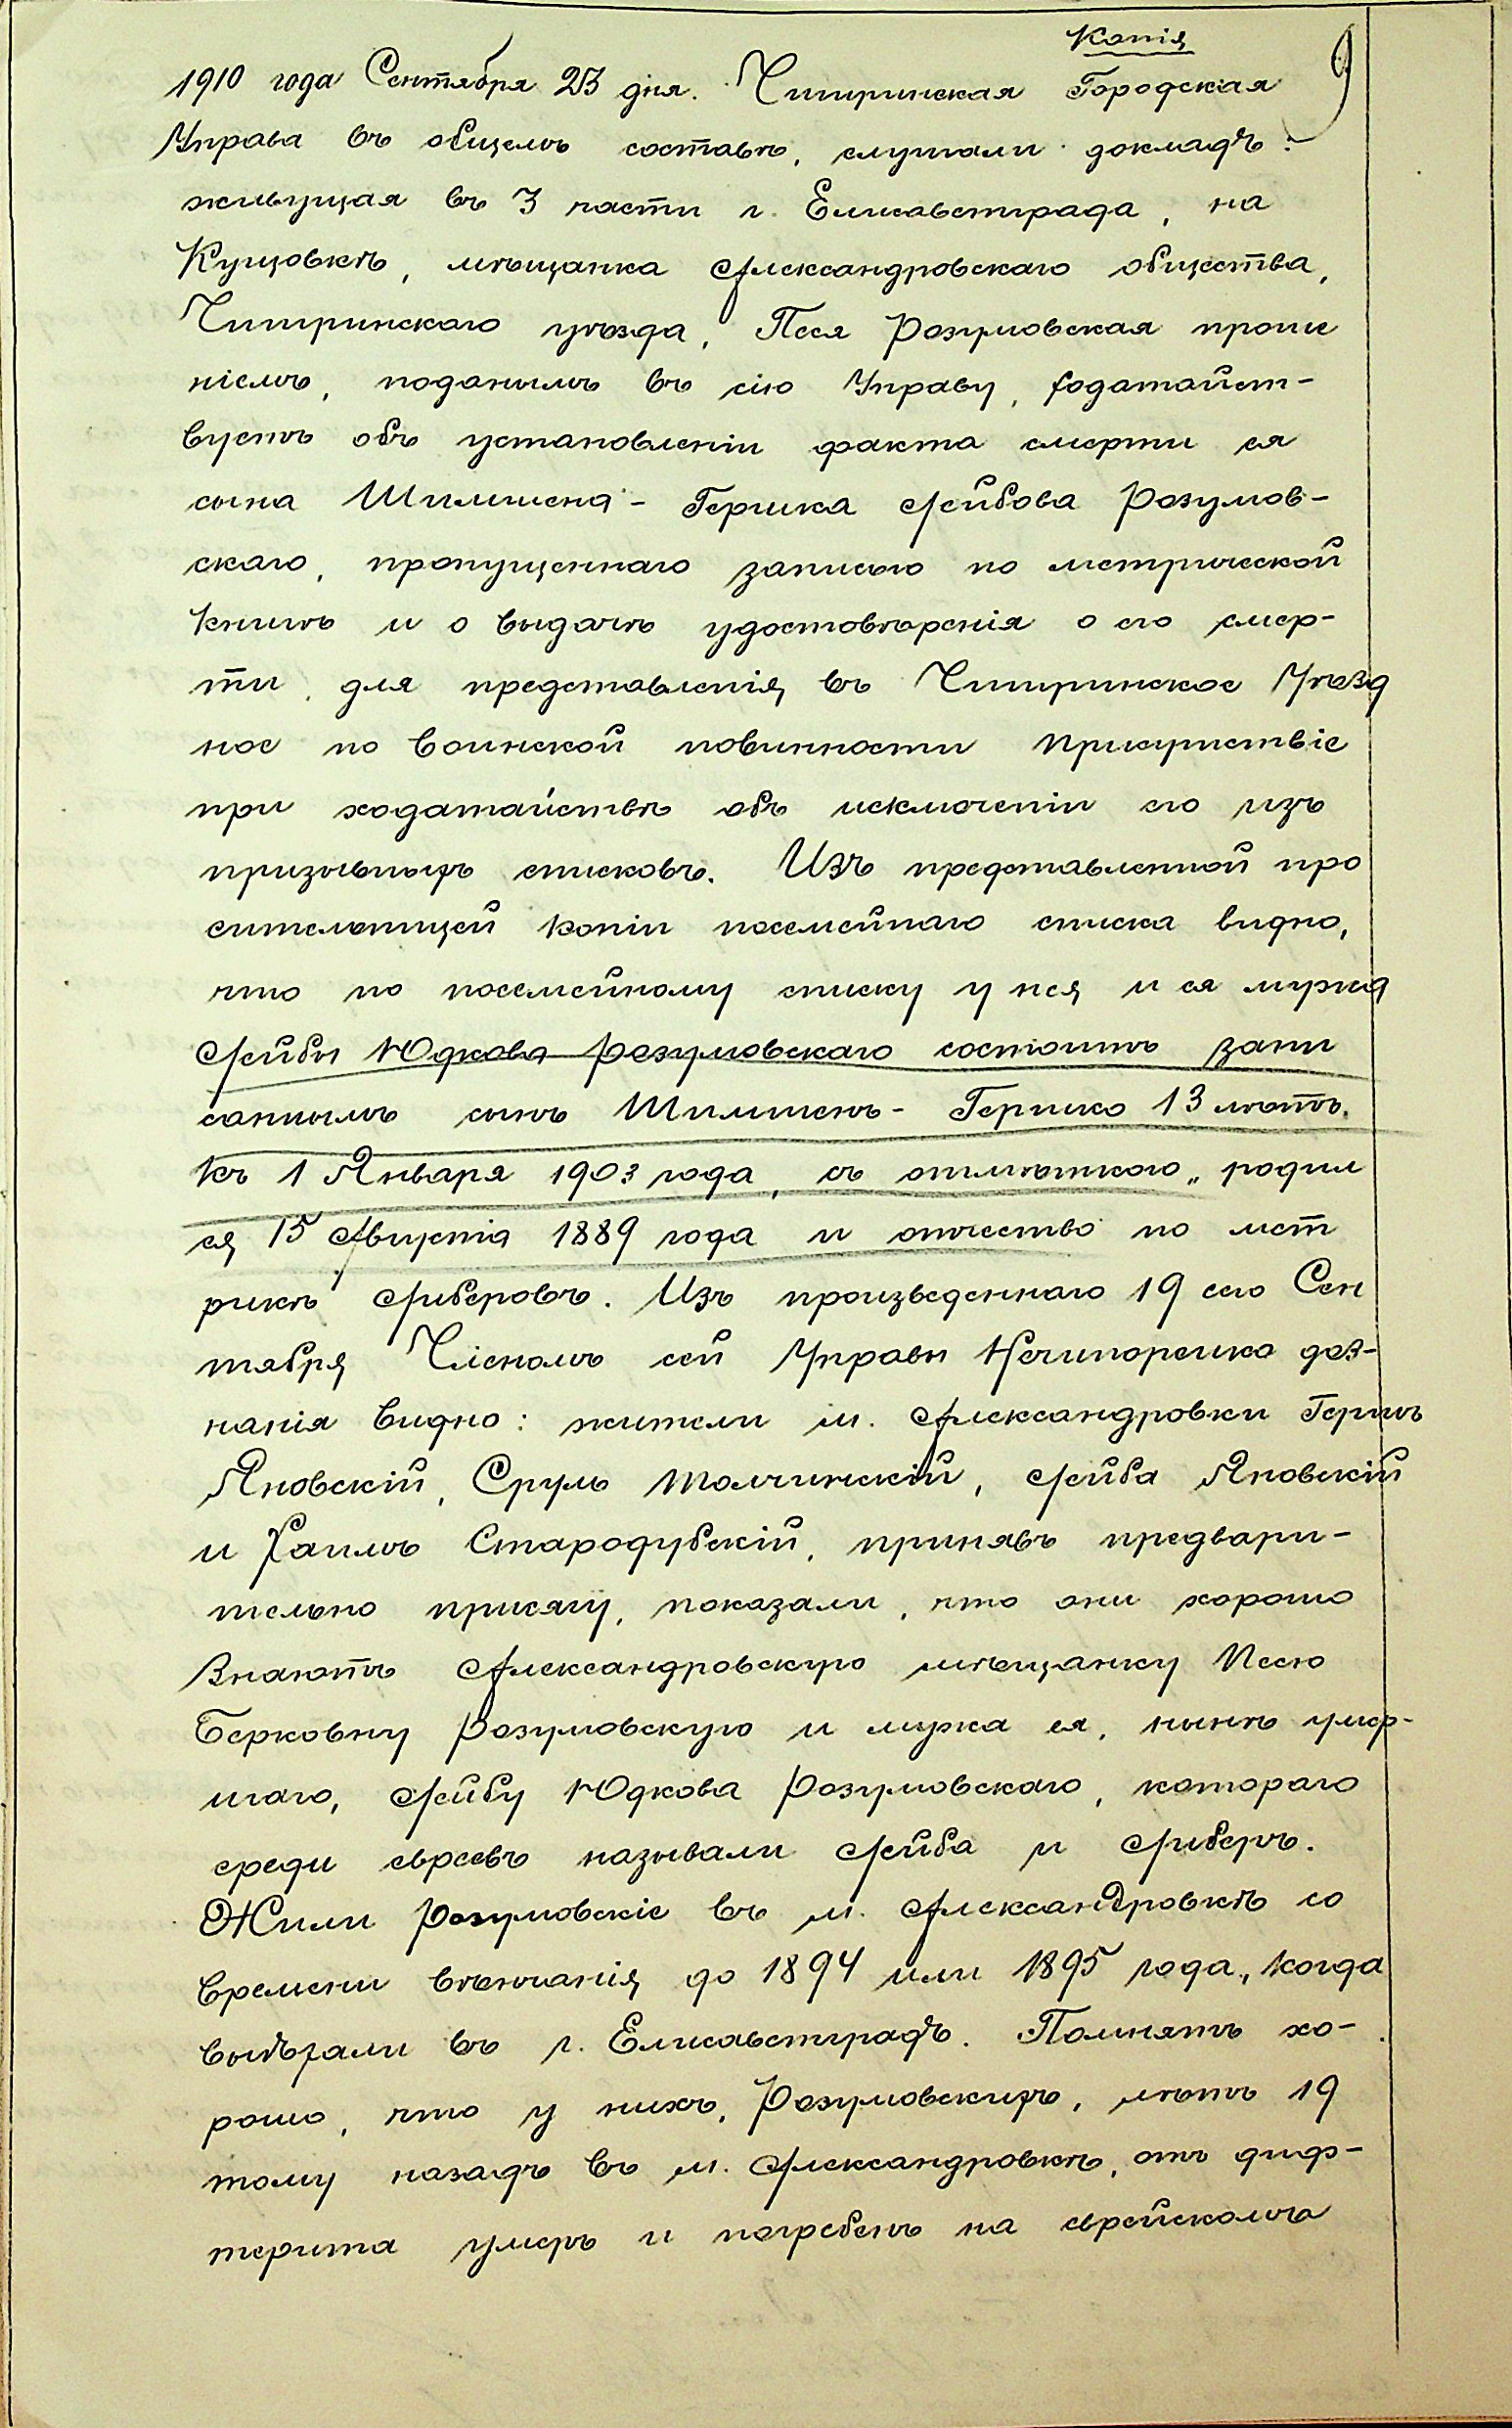 Копія
9
1910 года Сентября 23 дня. Чигиринская Городская
Управа въ общемъ составѣ, слушали докладъ:
живущая въ 3 части г. Елисаветграда, на
Кущовкѣ, мѣщанка Александровскаго общества,
Чигиринскаго уѣзда, Песя Розумовская проше
ніемъ, поданнымъ въ сію Управу, ходатайст-
вуетъ объ установленіи факта смерти ея
сына Шимшена-Гершка Лейбова Розумов-
скаго, пропущеннаго записью по метрической
книгѣ и о выдачѣ удостовѣренія о его смер-
ти, для представленія въ Чигиринское Уѣзд
ное по воинской повинности Присутствіе
при ходатайствѣ объ исключеніи его изъ
призывныхъ списковъ. Изъ представленной про
сительницей копіи посемейнаго списка видно,
что по посемейному списку у нея и ея мужа
Лейбы Юдкова Розумовскаго состоитъ запи
саннымъ сынъ Шимшенъ-Гершко 13 лѣтъ.
къ 1 Января 1903 года, съ отмѣткою „родил
ся 15 Августа 1889 года и отчество по мет
рикѣ Либеровъ. Изъ произведеннаго 19 сего Сен
тября Членомъ сей Управы Нечипоренко доз-
нанія видно: жители м. Александровки Гершъ
Яновскій, Сруль Толчинскій, Лейба Яновскій
и Хаимъ Стародубскій, принявъ предвари-
тельно присягу, показали, что они хорошо
знаютъ Александровскую мѣщанку Песю
Берковну Розумовскую и мужа ея, нынѣ умер-
шаго, Лейбу Юдкова Розумовскаго, котораго
среди евреевъ называли Лейба и Либеръ.
Жили Розумовскіе въ м. Александровкѣ со
времени вѣнчанія до 1894 или 1895 года, когда
выѣхали въ г. Елисаветградъ. Помнятъ хо-
рошо, что у нихъ, Розумовскихъ, лѣтъ 19
тому назадъ въ м. Александровкѣ, отъ диф-
терита умеръ и погребенъ на еврейскомъ